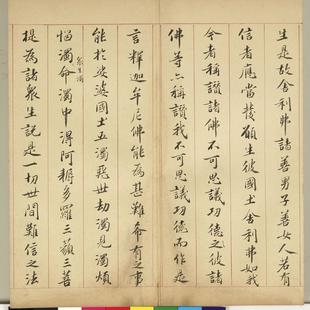 生是故舍利弗諸善男子善女人若有
信者應當發願生彼國土舍利弗如我
今者稱讚諸佛不可思議功德之彼諸
佛等亦稱讚我不可思議功德而作是
言釋迦牟尼佛能為甚難希有之事
能於娑婆國土五濁惡世劫濁見濁煩
惱濁眾生濁命濁中得阿耨多羅三藐三菩
提為諸眾生說是一切世間難信之法